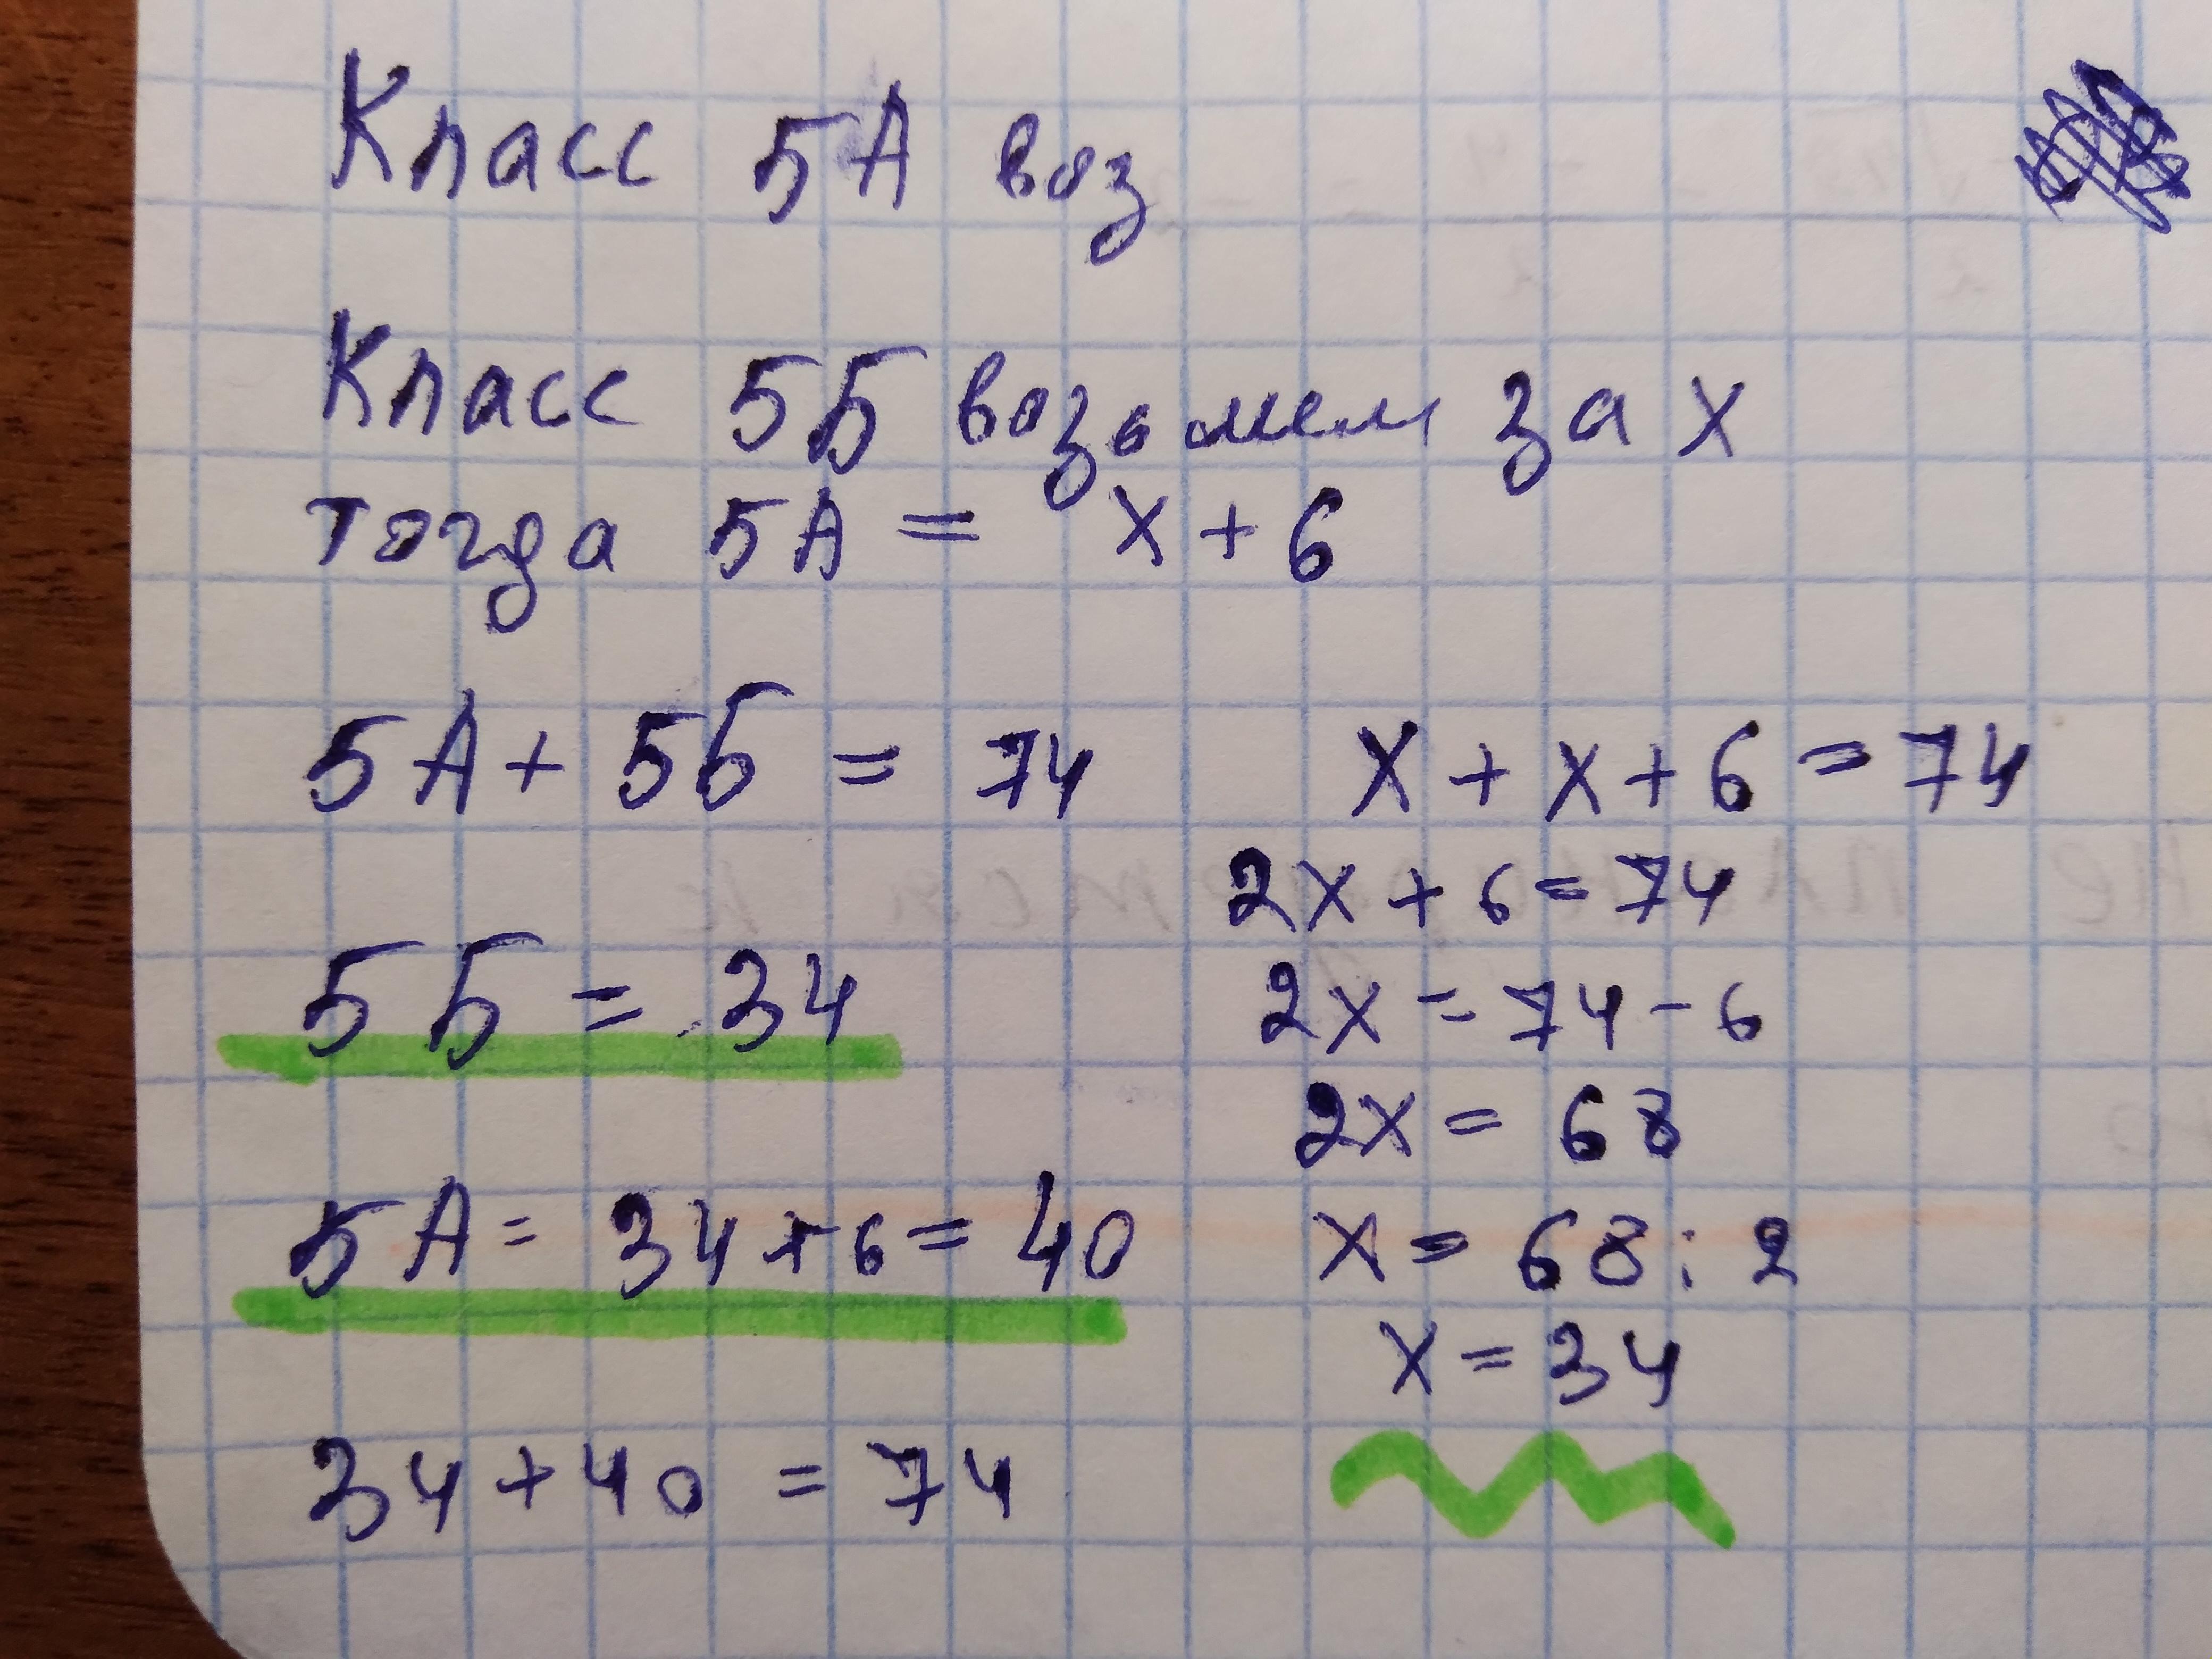 Класс 5А воз
Класс 5Б возьмем за х
тогда 5А = х + 6
5А + 5Б = 74
х + х + 6 = 74
2х + 6 = 74
5Б = 34
2х = 74 - 6
2х = 68
5А = 34 + 6 = 40
х = 68 : 2
х = 34
34 + 40 = 74